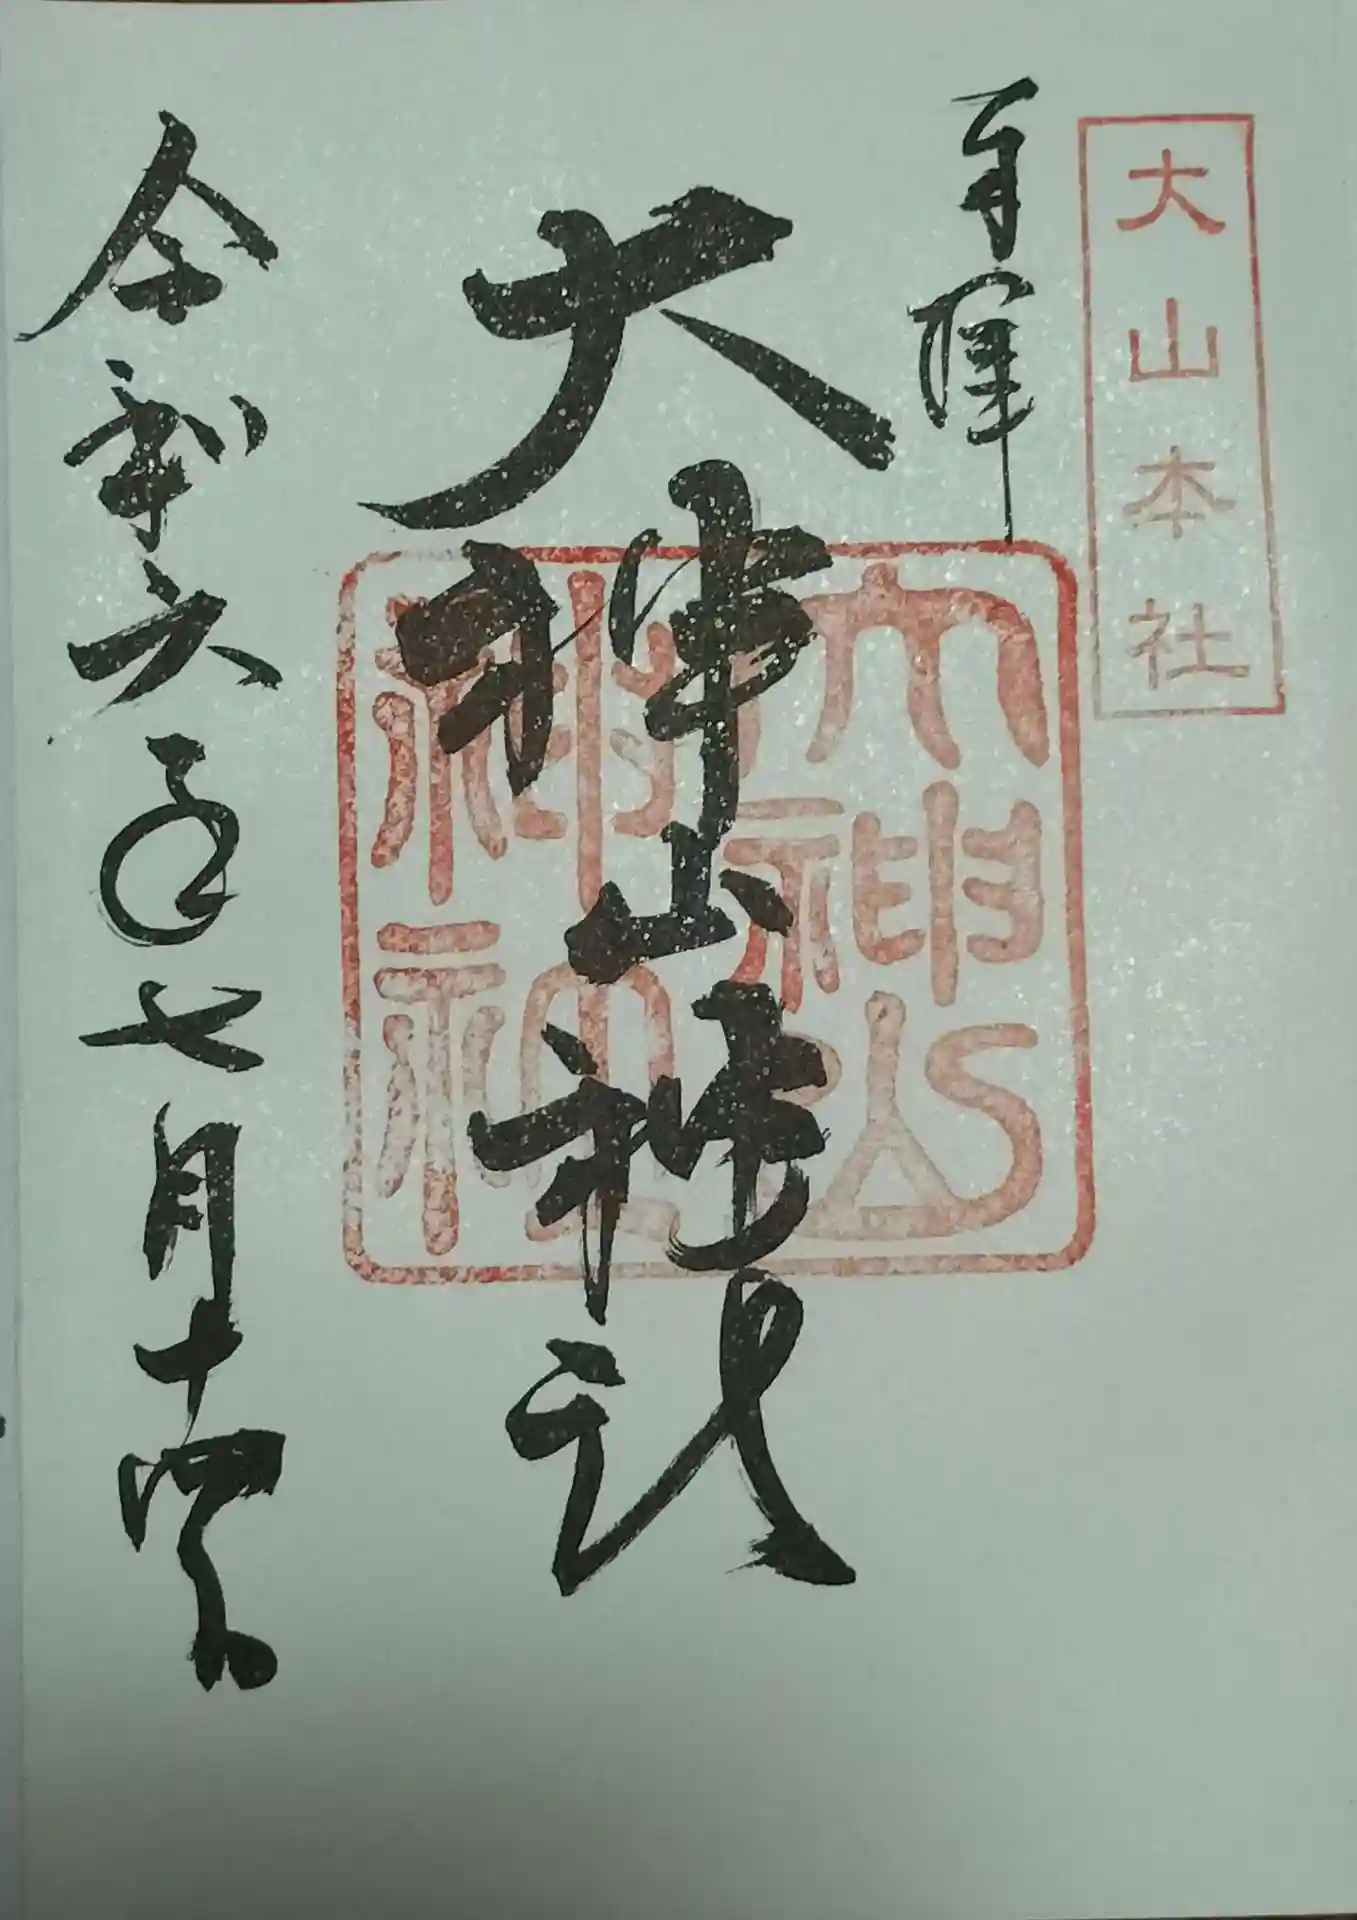 大山本社
大神山神社
大神山
神社
令和六年七月十四日